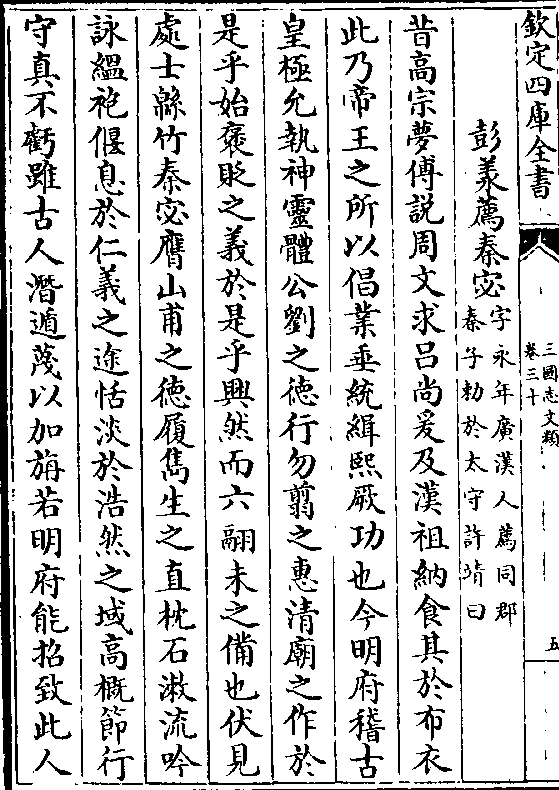 欽定四庫全書
三國志文類
卷三十
五
彭羕薦秦宓
字永年廣漢人薦同郡
秦子勅於太守許靖曰
昔高宗夢傅説周文求吕尚爰及漢祖納食其於布衣
此乃帝王之所以倡業垂統緝熙厥功也今明府稽古
皇極允執神靈體公劉之德行勿翦之惠清廟之作於
是乎始褒貶之義於是乎興然而六翮未之備也伏見
處士緜竹秦宓膺山甫之德履雋生之直枕石漱流吟
詠緼袍偃息於仁義之途恬淡於浩然之域高概節行
守真不虧雖古人潛遁蔑以加旃若明府能招致此人